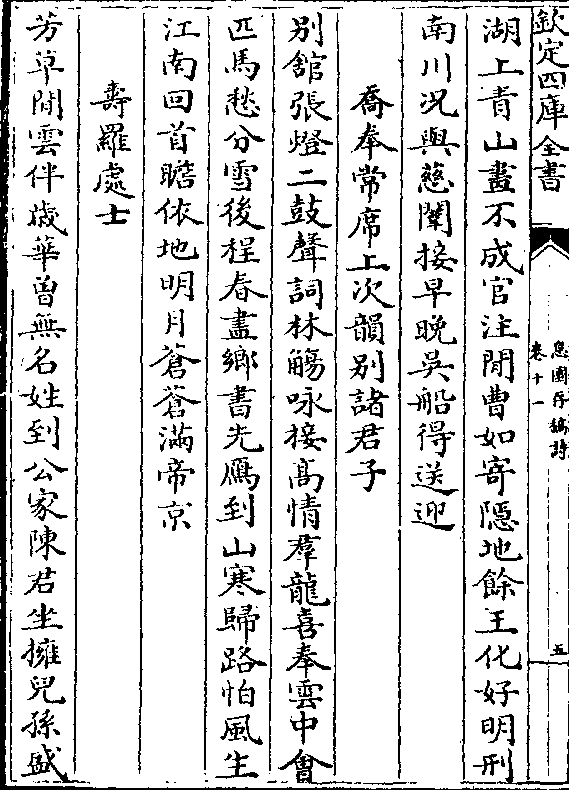 欽定四庫全書
息園存稿詩
卷十一
五
湖上青山畫不成官注閒曹如寄隱地餘王化好明刑
南川况與慈闈接早晚吳船得送迎
喬奉常席上次韻别諸君子
别舘張燈二鼓聲詞林觴咏接髙情羣龍喜奉雲中會
匹馬愁分雪後程春盡鄉書先鴈到山寒歸路怕風生
江南回首瞻依地明月蒼蒼滿帝京
壽羅處士
芳草閒雲伴歳華曽無名姓到公家陳君坐擁兒孫盛